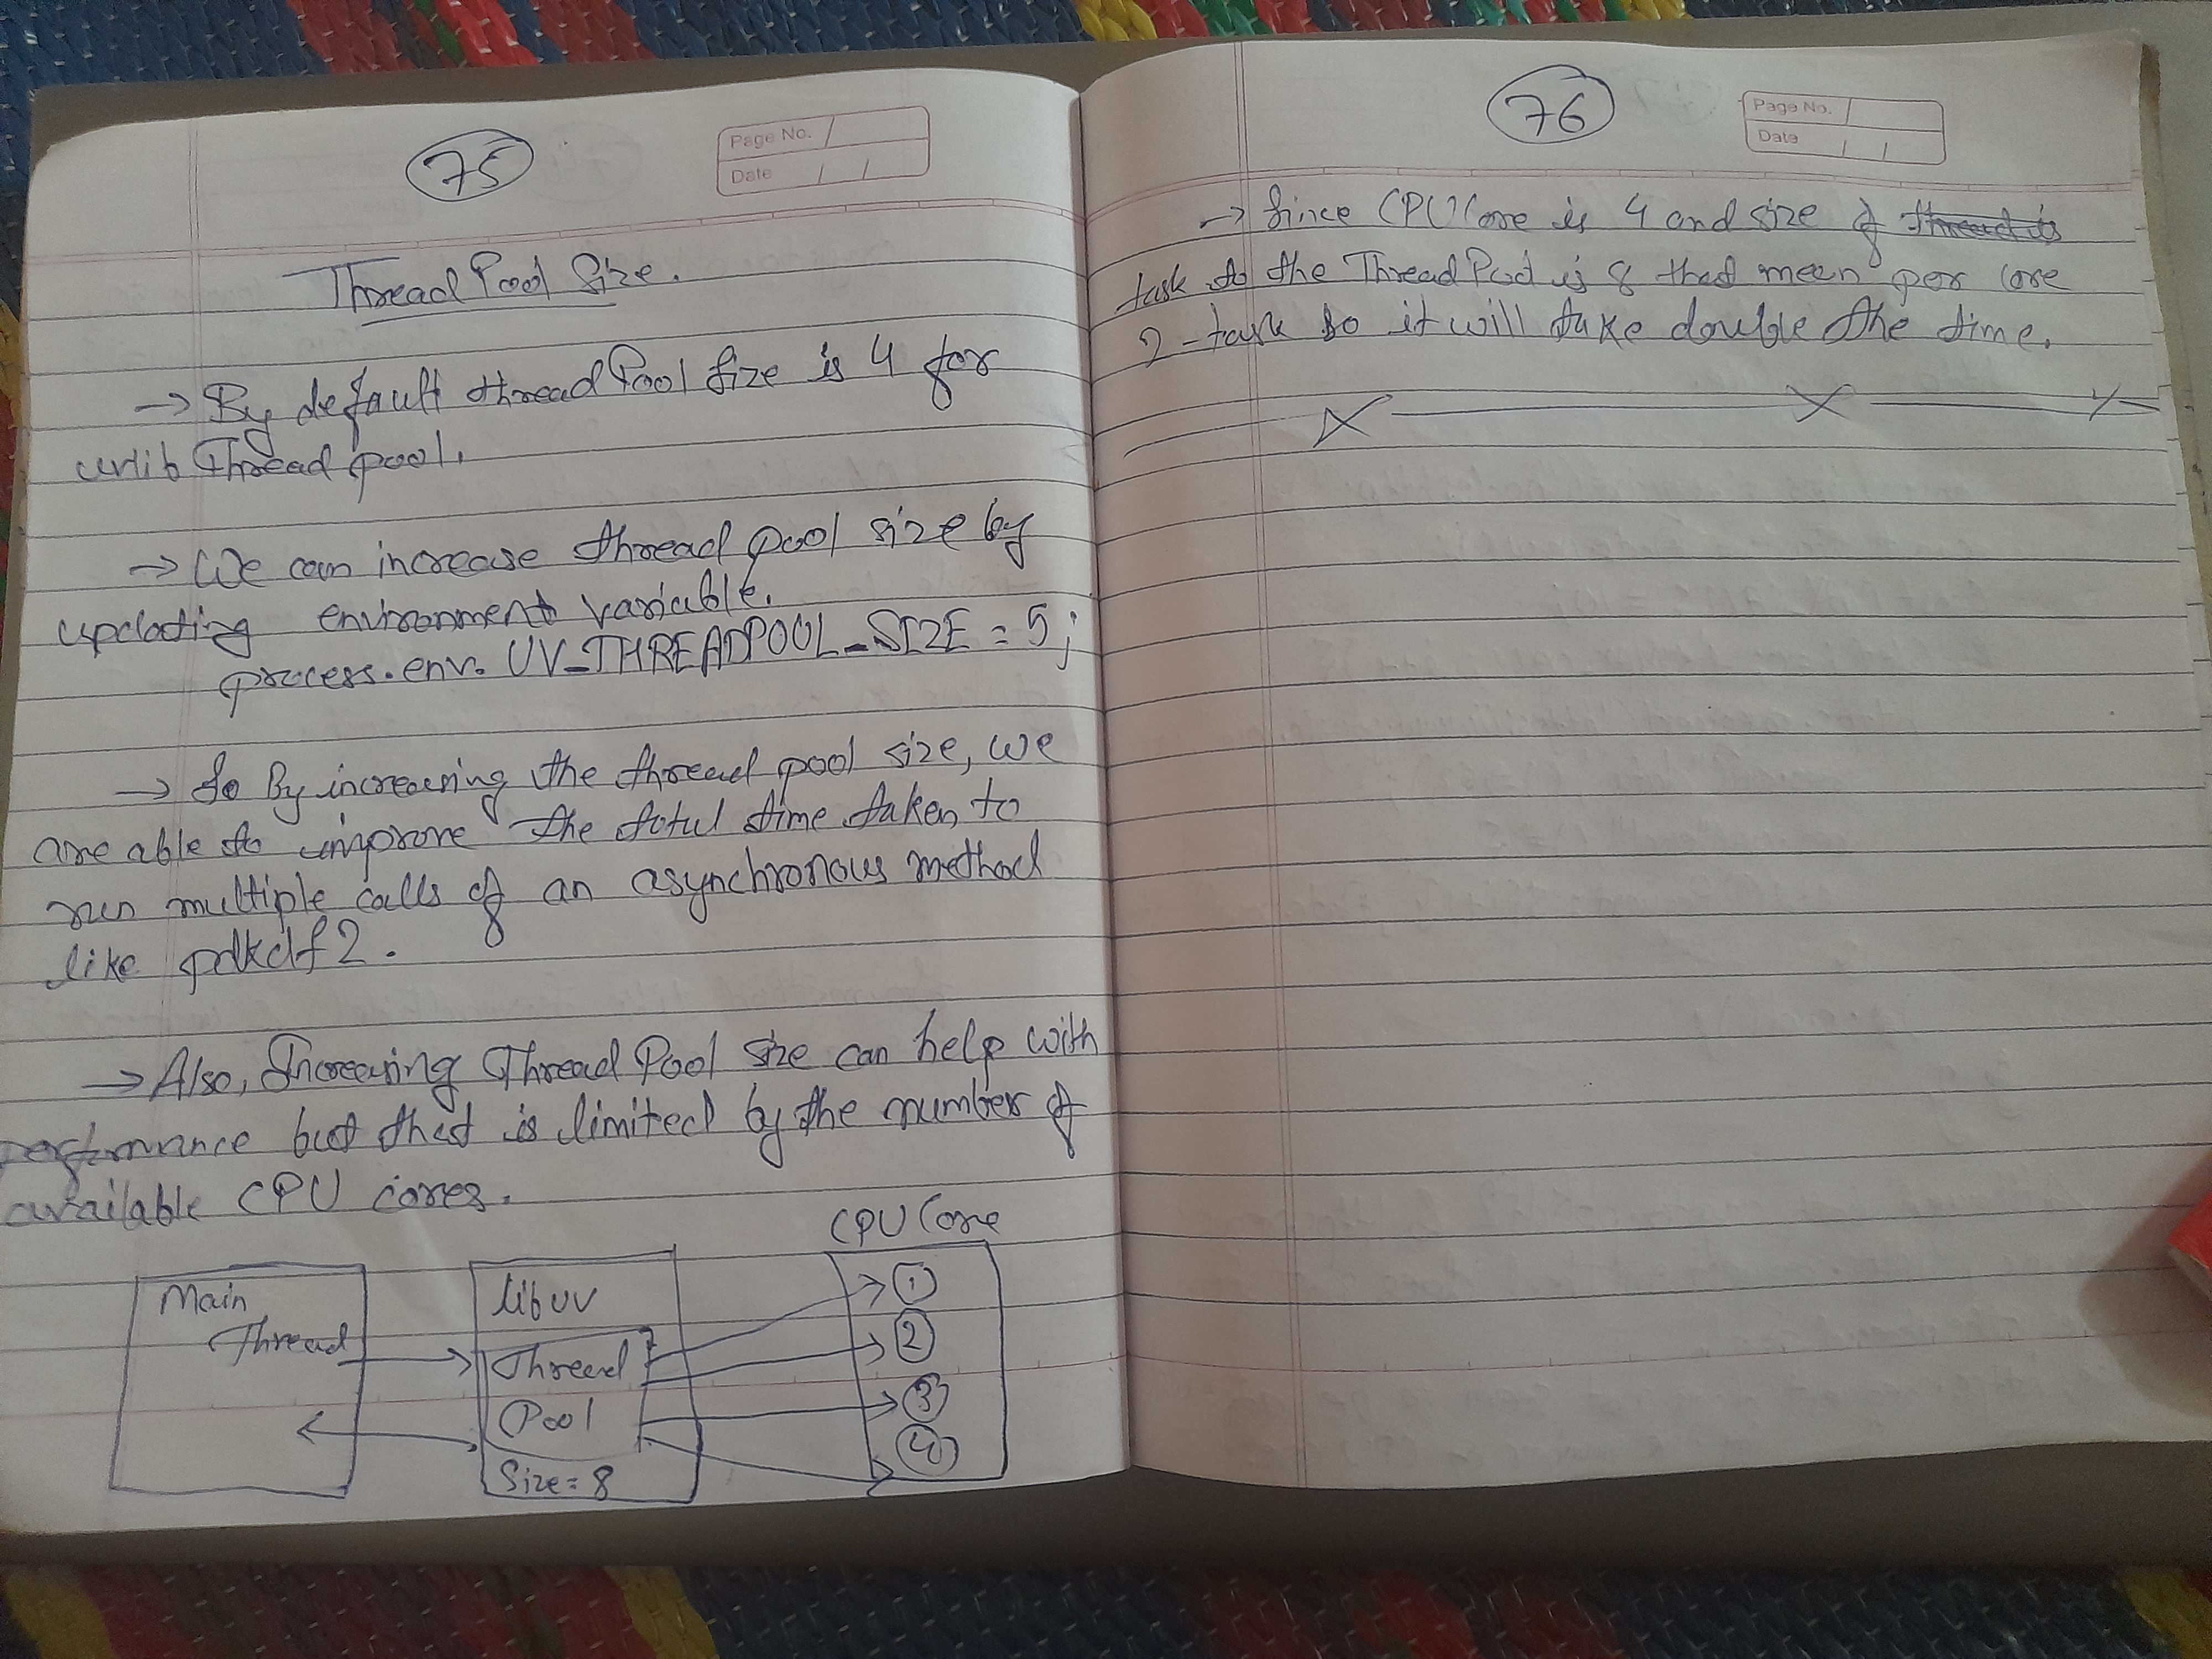 75
Page No.
Date
Thread Pool Size.
→ By default thread Pool Size is 4 for
uvlib Thread pool.
→ We can increase thread pool size by
updating environment variable.
process.env. UV_THREADPOOL_SIZE = 5;
→ So By increasing the thread pool size, we
are able to improve the total time taken to
run multiple calls of an asynchronous method
like pdkdf2.
→ Also, Increasing Thread Pool size can help with
performance but that is limited by the number of
available CPU cores.
CPU Core
Main
Thread
libuv
Thread
Pool
Size = 8
1
2
3
4
76
Page No.
Date
→ Since CPU Core is 4 and size of thread is
task to the Thread Pool is 8 that mean per core
2-task so it will take double the time.